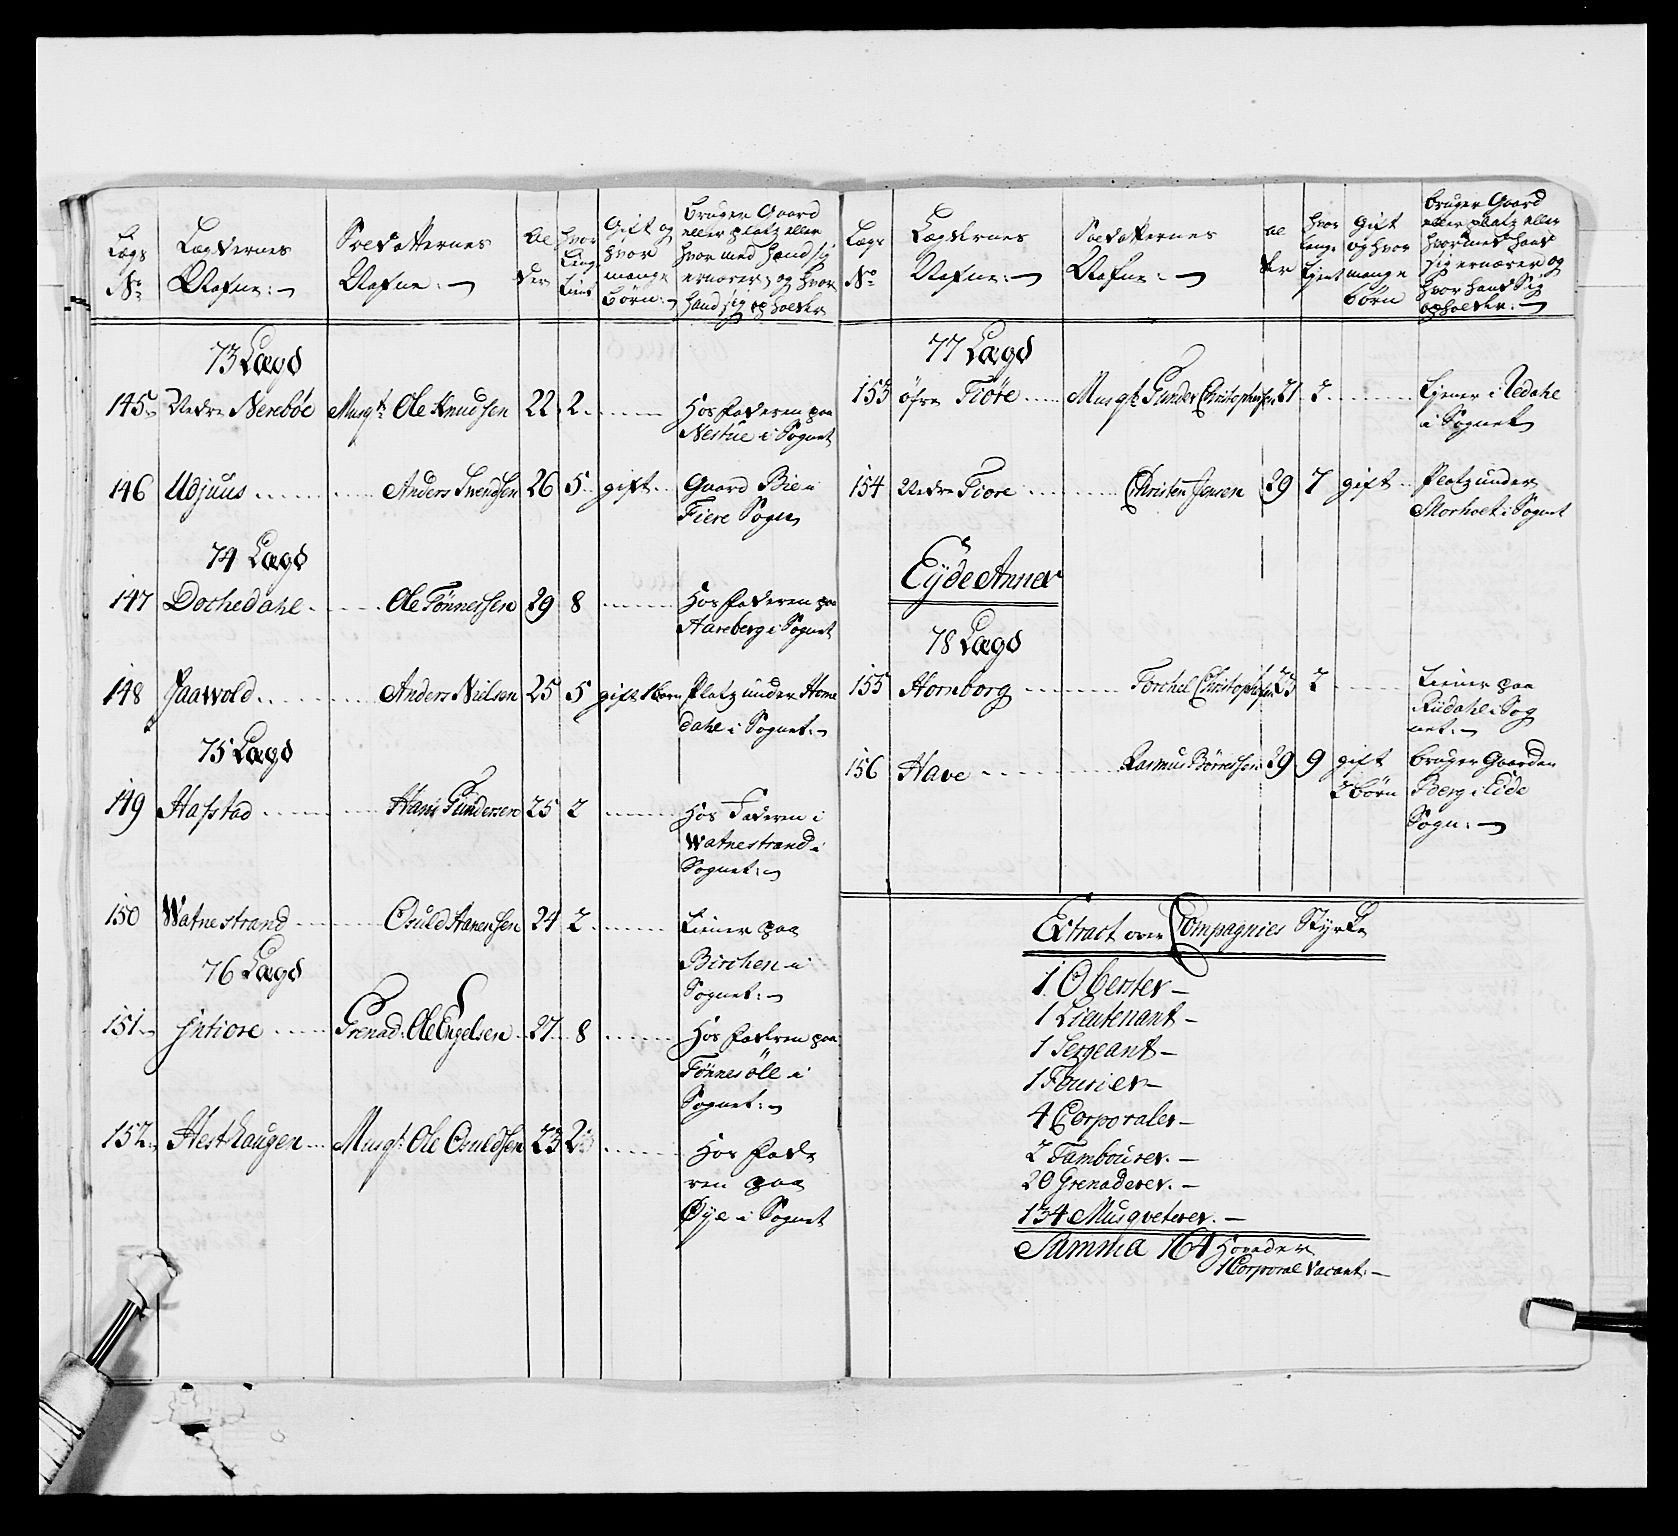 Lægs No
Lægdernes Nafne:
Soldatternes Nafne:
Alder
Hvor Længe tient
Gift og hvor mange Børn:
bruger Gaard eller platz eller hvor med hand sig ernærer, og hvor hand sig opholder
73 Lægd
145 Nedre Nerebøe Musqt: Ole Knudsen 22 2 Hos faderen paa
Nestue i Sognet
146 Udjuus Anders Svendsen 26 5 gift Gaard Bie i
Fiere Sogn
74 Lægd
147 Dochedahl Ole Tønnessen 29 8 Hos faderen paa
Aareberg i Sognet
148 Jaawold Anders Nielsen 25 5 gift 1 børn Platz under Home
dahl i Sognet:
75 Lægd
149 Hafstad Hans Gundersen 25 2 Hos Faderen i
Watnestrand i
Sognet:
150 Watnestrand Osuld Aanensen 24 2 Tiener paa
Birchen i
Sognet:
76 Lægd
151 Intiore Grenad: Ole Engelsen 27 8 Hos faderen paa
Tønnesøll i
Sognet:
152 Hesthaugen Musqt: Ole Osuldsen 23 2 Hos fade
ren paa
Øye i Sognet
Lægs No
Lægdernes Nafne:
Soldatternes Nafne:
alder
hvor længe tient
Gift og hvor mange børn
bruger Gaard eller platz eller hvormed hand sig ernærer og hvor hand sig opholder:
77 Lægd
153 øfre Fiøre Musqt: Gunder Christophersen 21 2 tiener i Redahl
i Sognet
154 Nedre Fiore Christen Jensen 29 7 gift Platz under
Morholt i Sognet
Eyde Anner
78 Lægd
155 Hornborg Torchel Christophersen 23 2 Tiener paa
Riidahl i Sog
net:
156 Have Rasmus Børresen 29 9 gift bruger Gaarden
2 børn Berg i Eide
Sogn:
Extract over Compagnies Styrke
1 Oberster
1 Lieutenant
1 Sergeant
1 Fourier
4 Corporaler
2 Tambourer.
20 Grenaderer.
134 Musqveterer.
Summa 164 Hoveder
1 Corporal Vacant: